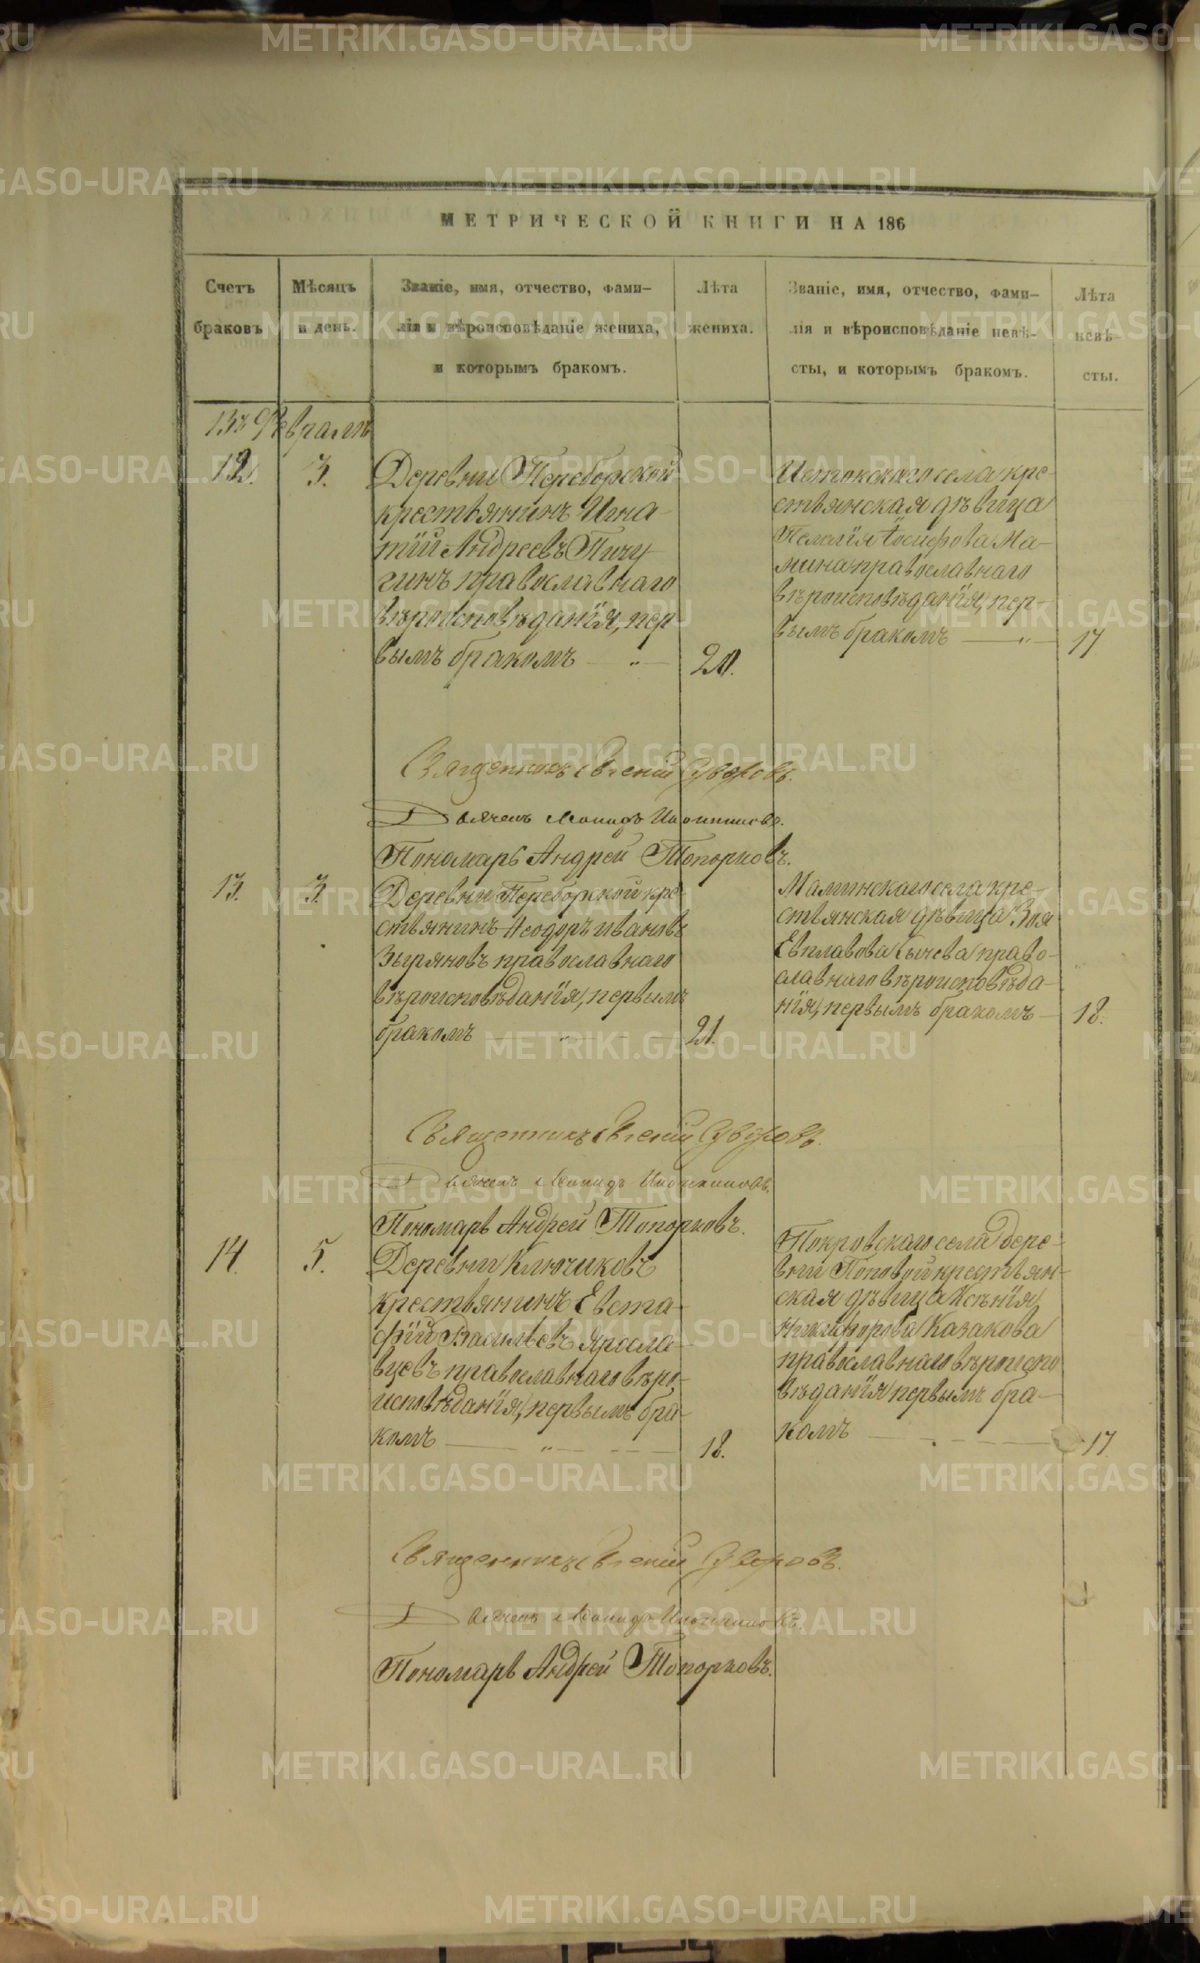 МЕТРИЧЕСКОЙ КНИГИ НА 186
Счетъ браковъ
Мѣсяцъ и день.
Званіе, имя, отчество, фами-
лія и вѣроисповѣданіе жениха,
и которымъ бракомъ.
Лѣта жениха.
Званіе, имя, отчество, фами-
лія и вѣроисповѣданіе невѣ-
сты, и которымъ бракомъ.
Лѣта невѣ-
сты.
Въ Февралѣ
12. 3.
Деревни Переборской
крестьянинъ Игна-
тій Андреевъ Пичу
гинъ православнаго
вѣроисповѣданія, пер-
вымъ бракомъ — " —
20.
Истокскаго села кре-
стьянская дѣвица
Пелагія Іосифова Ма-
мина православнаго
вѣроисповѣданія, пер-
вымъ бракомъ — " —
17
Священникъ Евгеній Суворовъ.
Дьяченъ Леонидъ
Пономарь Андрей Топорковъ.
13. 3.
Деревни Переборской кре-
стьянинъ Ѳеодоръ Ивановъ
Зыряновъ православнаго
вѣроисповѣданія, первымъ
бракомъ — " —
21.
Маминскаго села кре-
стьянская дѣвица Зоя
Евплавова Сычева право-
славнаго вѣроисповѣда-
нія, первымъ бракомъ —
18.
Священникъ Евгеній Суворовъ.
Дьяченъ Леонидъ
Пономарь Андрей Топорковъ.
14. 5.
Деревни Ключиковъ
крестьянинъ Евста-
фій Васильевъ Яросла-
вцевъ православнаго вѣро-
исповѣданія, первымъ бра-
комъ — " —
18.
Покровскаго села дере-
вни Поповой крестьян-
ская дѣвица Ксенія
Никифорова Казакова
православнаго вѣроиспо
вѣданія первымъ бра-
комъ —
17.
Священникъ Евгеній Суворовъ.
Дьяченъ Леонидъ
Пономарь Андрей Топорковъ.
METRIKI.GASO-URAL.RU